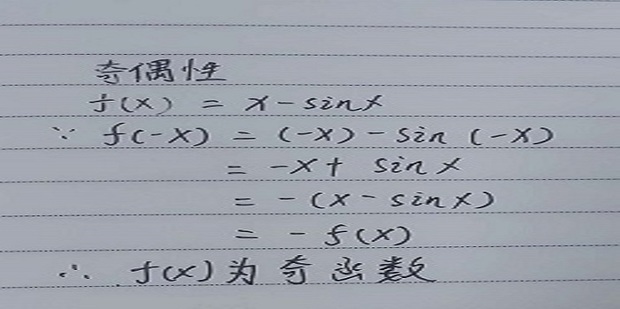 奇偶性
f(x) = x - sinx
∵ f(-x) = (-x) - sin (-x)
= -x + sinx
= -(x - sinx)
= - f(x)
∴ f(x)为奇函数